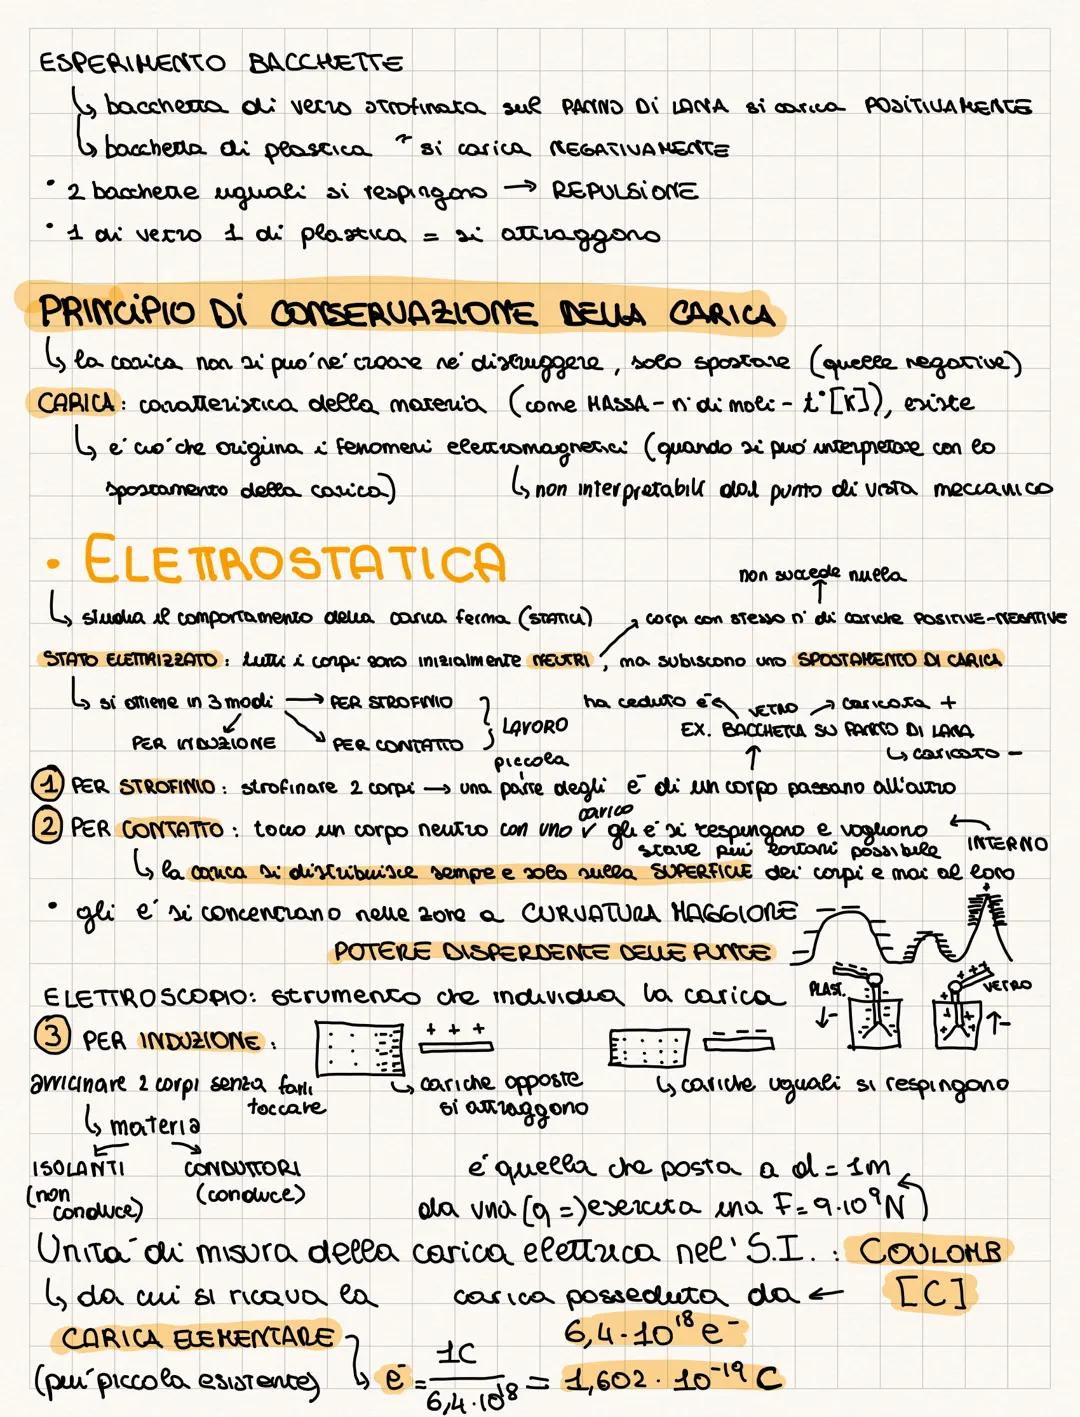 ESPERIMENTO BACCHETTE
↳ bacchetta di vetro strofinata sul PANNO DI LANA si carica POSITIVAMENTE
↳ bacchetta di plastica " si carica NEGATIVAMENTE
• 2 bacchette uguali si respingono → REPULSIONE
• 1 di vetro 1 di plastica = si attraggono
PRINCIPIO DI CONSERVAZIONE DELLA CARICA
↳ la carica non si può né creare né distruggere, solo spostare (quelle negative)
CARICA: caratteristica della materia (come MASSA - n° di moli - t°[K]), esiste
↳ è ciò che origina i fenomeni elettromagnetici (quando si può interpretare con lo
spostamento della carica) ↳ non interpretabili dal punto di vista meccanico
• ELETTROSTATICA
non succede nulla
↳ studia il comportamento della carica ferma (STATICA) corpi con stesso n° di cariche POSITIVE-NEGATIVE
STATO ELETTRIZZATO: tutti i corpi sono inizialmente NEUTRI, ma subiscono uno SPOSTAMENTO DI CARICA
↳ si ottiene in 3 modi → PER STROFINIO ha ceduto e⁻ VETRO → caricata +
PER INDUZIONE PER CONTATTO LAVORO EX. BACCHETTA SU PANNO DI LANA
↳ caricato -
piccola
1 PER STROFINIO: strofinare 2 corpi → una parte degli e⁻ di un corpo passano all'altro
carico
2 PER CONTATTO: tocco un corpo neutro con uno √ gli e⁻ si respingono e vogliono
stare più lontani possibile INTERNO
↳ la carica si distribuisce sempre e solo sulla SUPERFICIE dei corpi e mai al loro
• gli e⁻ si concentrano nelle zone a CURVATURA MAGGIORE
POTERE DISPERDENTE DELLE PUNTE
ELETTROSCOPIO: strumento che individua la carica PLAST. VETRO
3 PER INDUZIONE:
+ + +
- - - -
avvicinare 2 corpi senza farli toccare ↳ cariche opposte si attraggono ↳ cariche uguali si respingono
↳ materia
ISOLANTI CONDUTTORI è quella che posta a d = 1m
(non conduce) (conduce) da una (q =) esercita una F = 9·10⁹N
Unità di misura della carica elettrica nel' S.I.: COULOMB
↳ da cui si ricava la carica posseduta da ← [C]
CARICA ELEMENTARE 6,4·10¹⁸ e⁻
(più piccola esistente) ↳ e⁻ = 1C / 6,4·10¹⁸ = 1,602·10⁻¹⁹ C